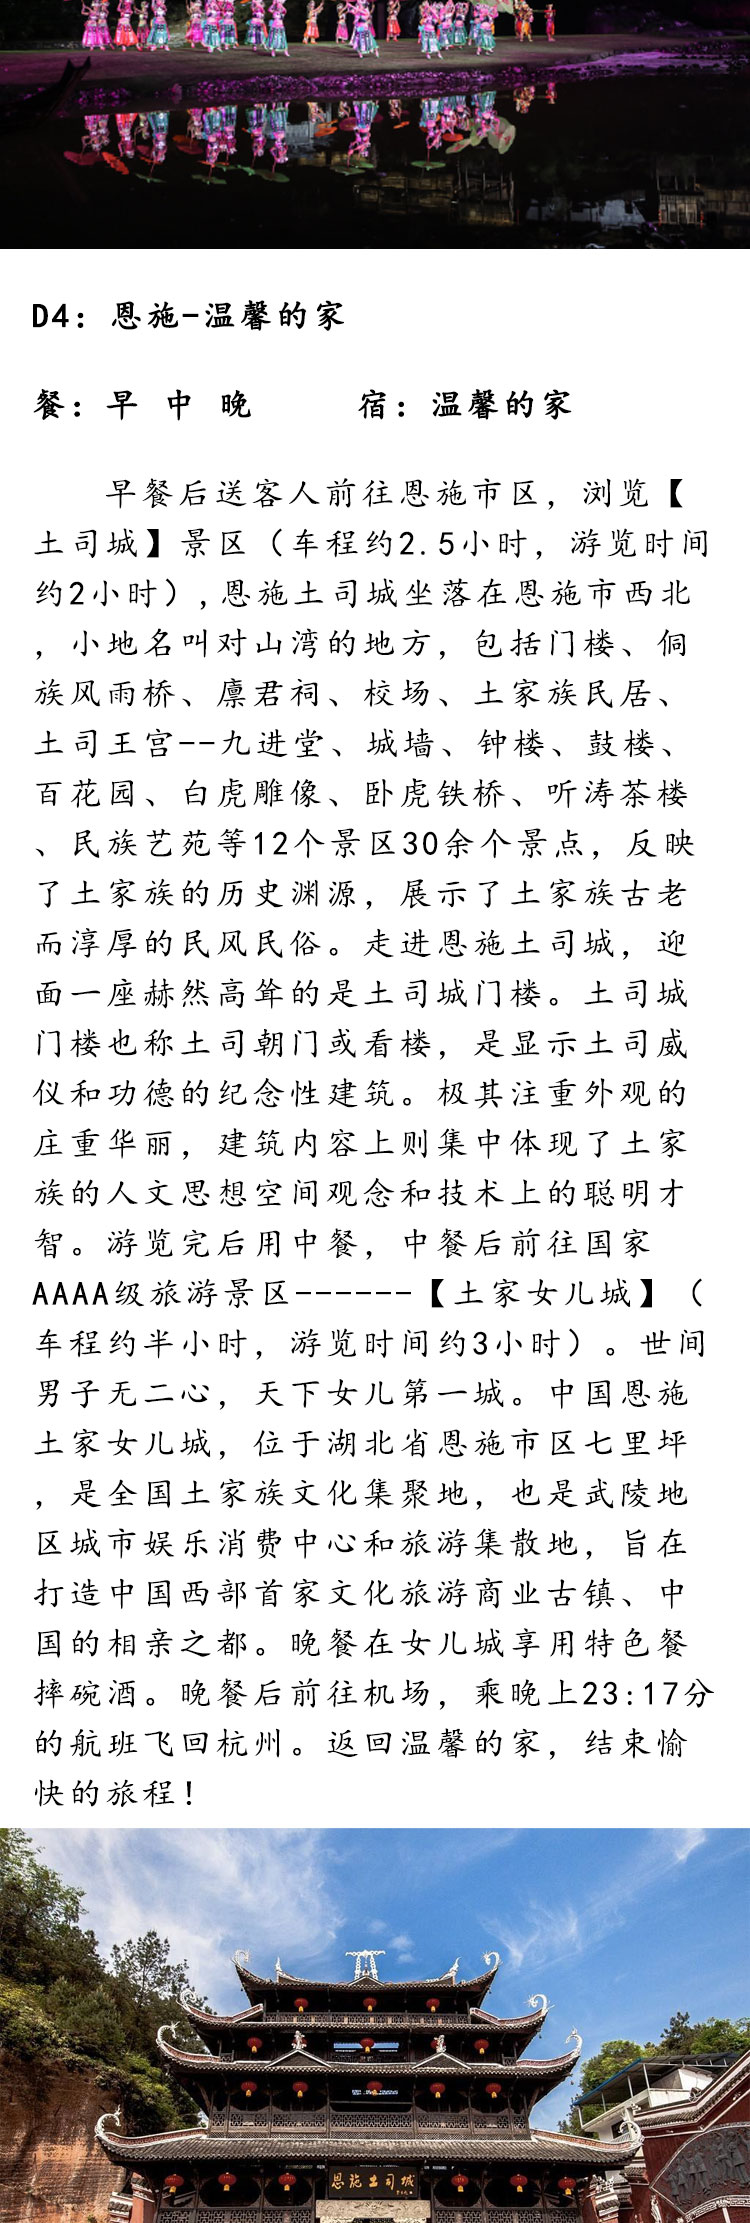 D4：恩施-温馨的家
餐：早 中 晚 宿：温馨的家
早餐后送客人前往恩施市区，浏览【
土司城】景区（车程约2.5小时，游览时间
约2小时）,恩施土司城坐落在恩施市西北
，小地名叫对山湾的地方，包括门楼、侗
族风雨桥、廪君祠、校场、土家族民居、
土司王宫--九进堂、城墙、钟楼、鼓楼、
百花园、白虎雕像、卧虎铁桥、听涛茶楼
、民族艺苑等12个景区30余个景点，反映
了土家族的历史渊源，展示了土家族古老
而淳厚的民风民俗。走进恩施土司城，迎
面一座赫然高耸的是土司城门楼。土司城
门楼也称土司朝门或看楼，是显示土司威
仪和功德的纪念性建筑。极其注重外观的
庄重华丽，建筑内容上则集中体现了土家
族的人文思想空间观念和技术上的聪明才
智。游览完后用中餐，中餐后前往国家
AAAA级旅游景区------【土家女儿城】（
车程约半小时，游览时间约3小时）。世间
男子无二心，天下女儿第一城。中国恩施
土家女儿城，位于湖北省恩施市区七里坪
，是全国土家族文化集聚地，也是武陵地
区城市娱乐消费中心和旅游集散地，旨在
打造中国西部首家文化旅游商业古镇、中
国的相亲之都。晚餐在女儿城享用特色餐
摔碗酒。晚餐后前往机场，乘晚上23:17分
的航班飞回杭州。返回温馨的家，结束愉
快的旅程！
恩施土司城